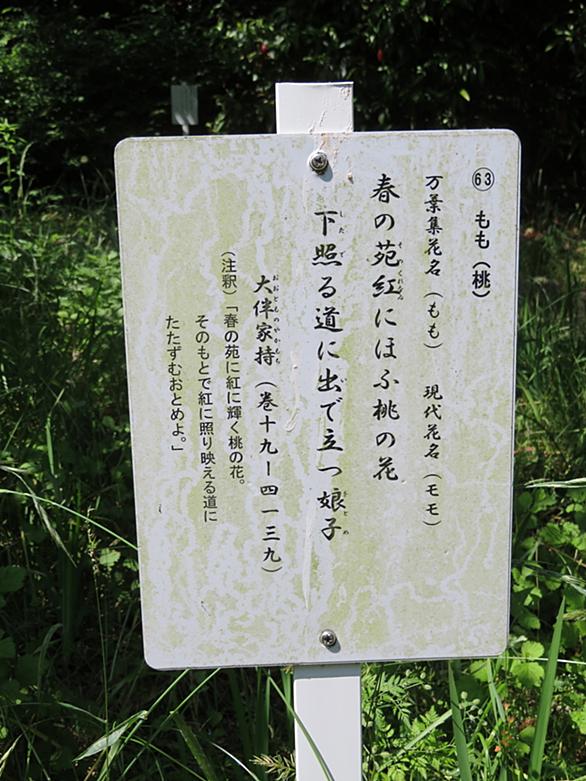 ㊿63 もも（桃）
万葉集花名（もも）　現代花名（モモ）
春の苑紅にほふ桃の花
下照る道に出で立つ娘子
大伴家持（巻十九ー四一三九）
（注釈）「春の苑に紅に輝く桃の花。
そのもとで紅に照り映える道に
たたずむおとめよ。」